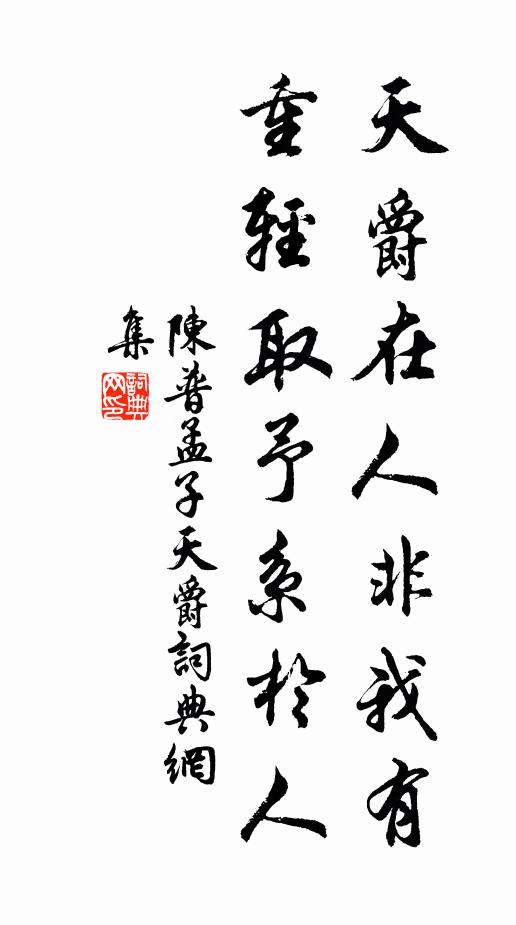 天爵在人非我有
重輕取予系於人
陳普孟子天爵詞典網
集
詞典
网印